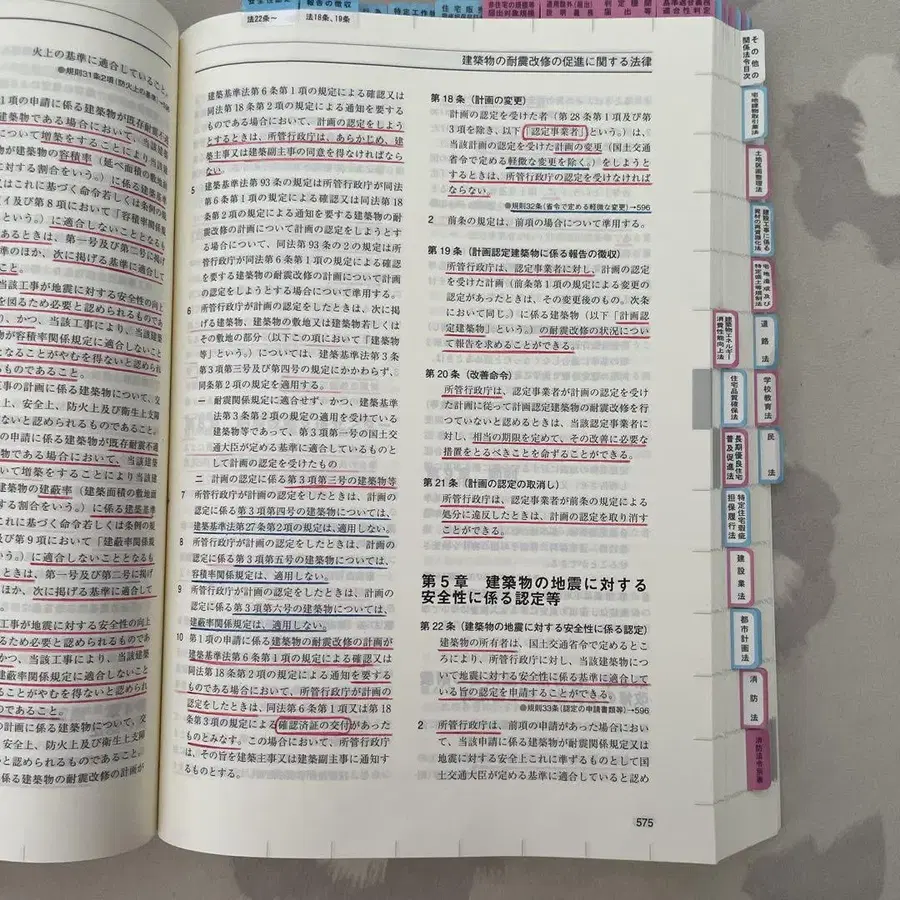 法22条～
法18条、19条
報告の徴収
建築物の耐震改修の促進に関する法律
火上の基準に適合していること。
●規則31条2項(防火上の基準)→596
1項の申請に係る建築物が既存耐震不
建築物である場合において、当該建
について増築をすることにより当該建
物が建築物の容積率（延べ面積の敷地面
対する割合をいう。）に係る建築基
又はこれに基づく命令若しくは条例の規
及び第8項において「容積率関係規
いう。）に適合しないこととなるも
あるときは、第一号及び第二号に掲げ
のほか、次に掲げる基準に適合して
こと。
当該工事が地震に対する安全性の向上
を図るため必要と認められるものであ
り、かつ、当該工事により、当該建築
が容積率関係規定に適合しないこと
なることがやむを得ないと認められ
ものであること。
事の計画に係る建築物について、交
、安全上、防火上及び衛生上支障
いと認められるものであること。
の申請に係る建築物が既存耐震不適
物である場合において、当該建築
いて増築をすることにより当該建
築物の建蔽率（建築面積の敷地面
する割合をいう。）に係る建築基
これに基づく命令若しくは条例の規
及び第9項において「建蔽率関係規
いう。）に適合しないこととなるも
ときは、第一号及び第二号に掲げ
ほか、次に掲げる基準に適合して
工事が地震に対する安全性の向上
るため必要と認められるものであ
かつ、当該工事により、当該建築
蔽率関係規定に適合しないこと
ることがやむを得ないと認められ
のであること。
の計画に係る建築物について、交
安全上、防火上及び衛生上支障
と認められるものであること。
に係る建築物の耐震改修の計画が
建築基準法第6条第1項の規定による確認又は
同法第18条第2項の規定による通知を要する
ものである場合において、計画の認定をしよう
とするときは、所管行政庁は、あらかじめ、建
築主事又は建築副主事の同意を得なければなら
ない。
5 建築基準法第93条の規定は所管行政庁が同法
第6条第1項の規定による確認又は同法第18
条第2項の規定による通知を要する建築物の耐
震改修の計画について計画の認定をしようとす
る場合について、同法第93条の2の規定は所
管行政庁が同法第6条第1項の規定による確認
を要する建築物の耐震改修の計画について計画
の認定をしようとする場合について準用する。
6 所管行政庁が計画の認定をしたときは、次に掲
げる建築物、建築物の敷地又は建築物若しくは
その敷地の部分（以下この項において「建築物
等」という。）については、建築基準法第3条
第3項第三号及び第四号の規定にかかわらず、
同条第2項の規定を適用する。
一 耐震関係規定に適合せず、かつ、建築基準
法第3条第2項の規定の適用を受けている
建築物等であって、第3項第一号の国土交
通大臣が定める基準に適合しているものと
して計画の認定を受けたもの
二 計画の認定に係る第3項第三号の建築物等
7 所管行政庁が計画の認定をしたときは、計画の
認定に係る第3項第四号の建築物については、
建築基準法第27条第2項の規定は、適用しない。
8 所管行政庁が計画の認定をしたときは、計画の
認定に係る第3項第五号の建築物については、
容積率関係規定は、適用しない。
9 所管行政庁が計画の認定をしたときは、計画の
認定に係る第3項第六号の建築物については、
建蔽率関係規定は、適用しない。
10 第1項の申請に係る建築物の耐震改修の計画が
建築基準法第6条第1項の規定による確認又は
同法第18条第2項の規定による通知を要する
ものである場合において、所管行政庁が計画の
認定をしたときは、同法第6条第1項又は第18
条第3項の規定による確認済証の交付があった
ものとみなす。この場合において、所管行政庁
は、その旨を建築主事又は建築副主事に通知す
るものとする。
第18条（計画の変更）
計画の認定を受けた者（第28条第1項及び第
3項を除き、以下「認定事業者」という。）は、
当該計画の認定を受けた計画の変更（国土交通
省令で定める軽微な変更を除く。）をしようと
するときは、所管行政庁の認定を受けなければ
ならない。
●規則32条(省令で定める軽微な変更)→596
2 前条の規定は、前項の場合について準用する。
第19条（計画認定建築物に係る報告の徴収）
所管行政庁は、認定事業者に対し、計画の認定
を受けた計画（前条第1項の規定による変更の
認定があったときは、その変更後のもの。次条
において同じ。）に係る建築物（以下「計画認
定建築物」という。）の耐震改修の状況につい
て報告を求めることができる。
第20条（改善命令）
所管行政庁は、認定事業者が計画の認定を受け
た計画に従って計画認定建築物の耐震改修を行
つていないと認めるときは、当該認定事業者に
対し、相当の期限を定めて、その改善に必要な
措置をとるべきことを命ずることができる。
第21条（計画の認定の取消し）
所管行政庁は、認定事業者が前条の規定による
処分に違反したときは、計画の認定を取り消す
ことができる。
第5章 建築物の地震に対する
安全性に係る認定等
第22条（建築物の地震に対する安全性に係る認定）
建築物の所有者は、国土交通省令で定めるとこ
ろにより、所管行政庁に対し、当該建築物につ
いて地震に対する安全性に係る基準に適合して
いる旨の認定を申請することができる。
●規則33条(認定の申請書類等)→596
2 所管行政庁は、前項の申請があった場合におい
て、当該申請に係る建築物が耐震関係規定又は
地震に対する安全上これに準ずるものとして国
土交通大臣が定める基準に適合していると認め
575
その他の関係法令目次
宅地建物取引業法
土地区画整理法
建設工事に係る資材の再資源化法
宅地造成及び特定盛土等規制法
建築物エネルギー消費性能向上法
道路法
住宅品質確保法
学校教育法
長期優良住宅普及促進法
民法
特定住宅瑕疵担保履行法
建設業法
都市計画法
消防法
消防法令別表